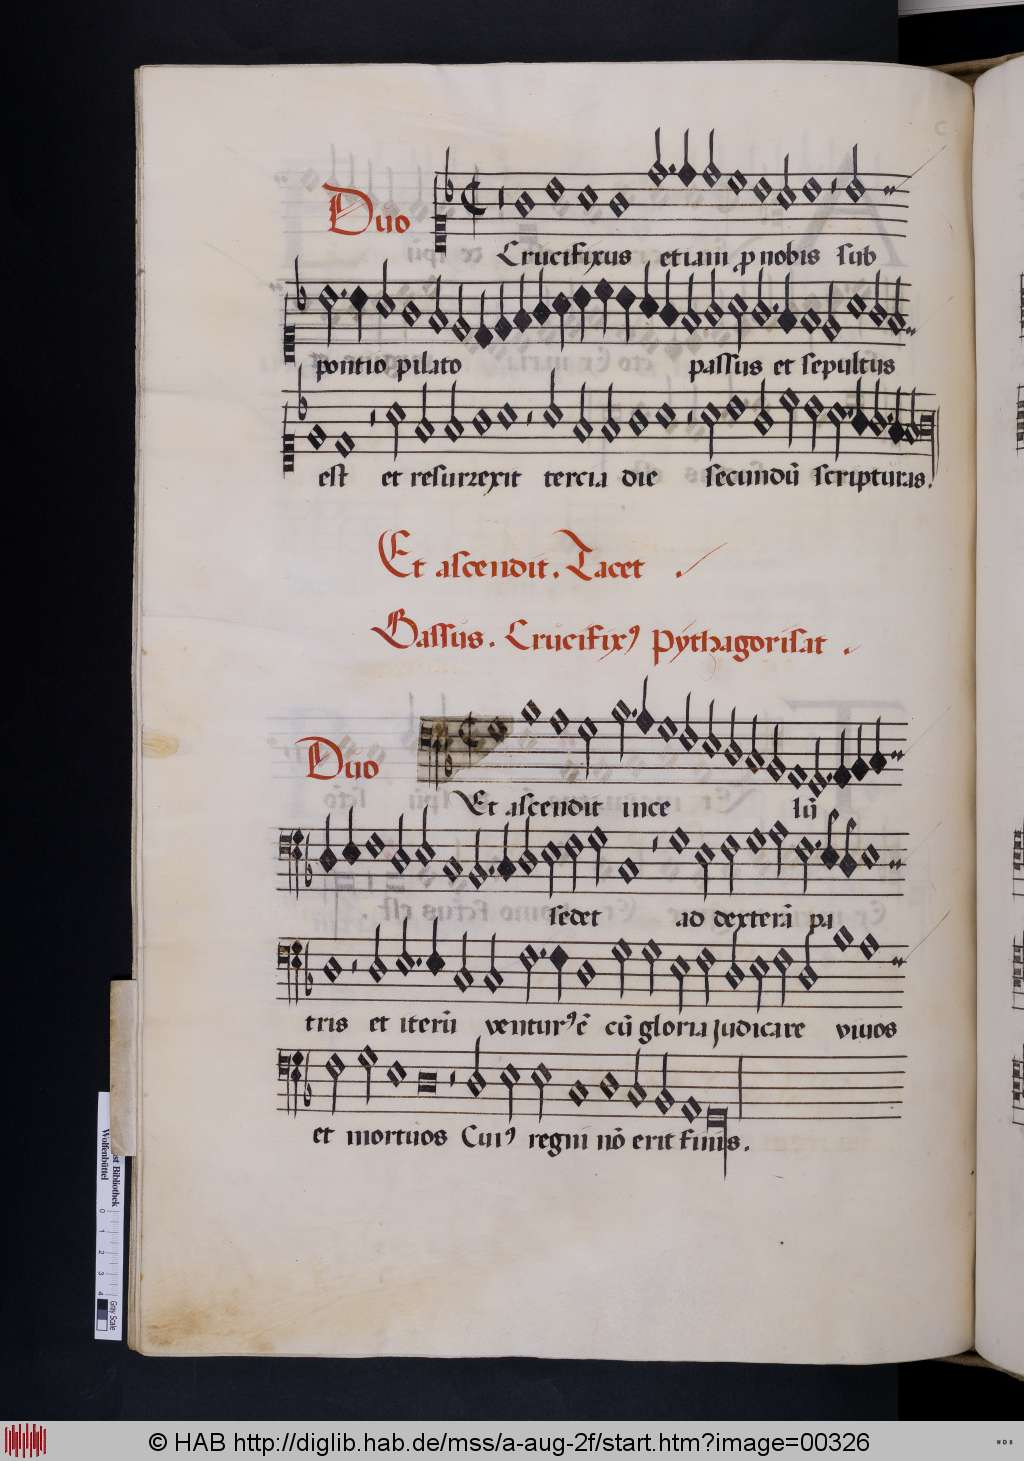 Duo
Crucifixus etiam ꝓ nobis sub
pontio pilato passus et sepultus
est et resurrexit tercia die secundū scripturas.
Et ascendit. Tacet.
Bassus. Crucifixꝰ pythagorisat.
Duo
Et ascendit in ce lū
sedet ad dexterā pa
tris et iterū venturꝰ ē cū gloria judicare viuos
et mortuos Cuiꝰ regni nō erit finis.
Wolfenbüttel
Bibliothek
0 1 2 3 4
Grey Scale
© HAB http://diglib.hab.de/mss/a-aug-2f/start.htm?image=00326